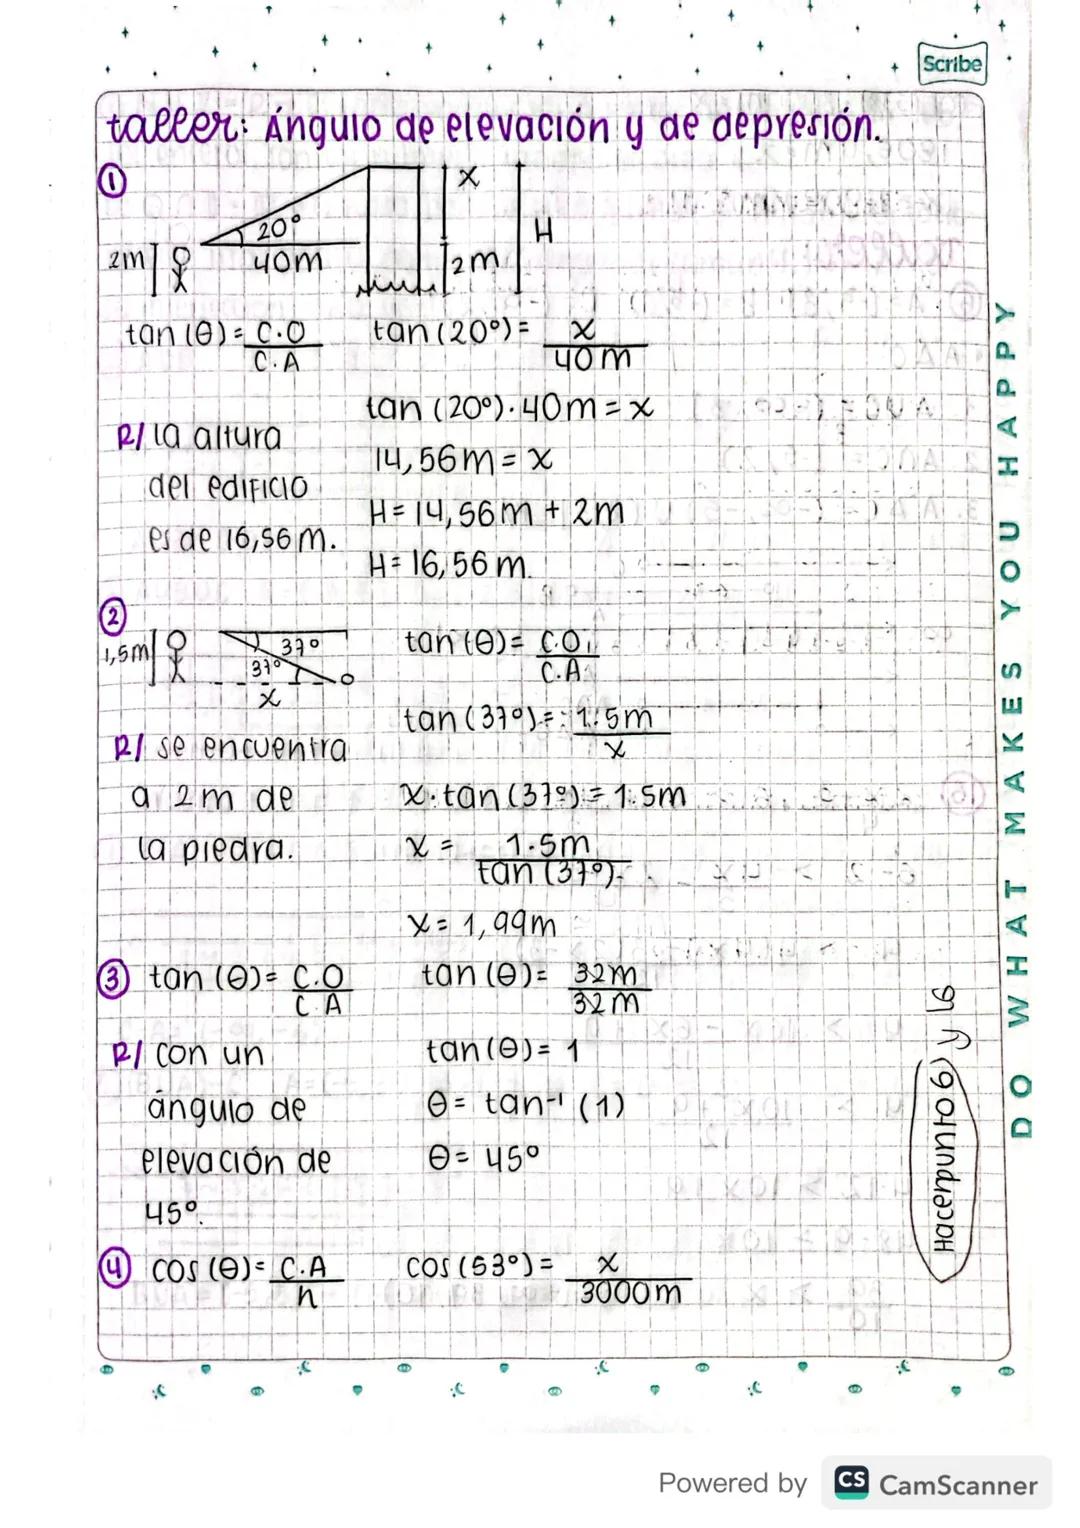 Scribe
taller: Ángulo de elevación y de depresión.
①
20°
40m
2m
x
2m
H
tan (θ) = C.O / C.A
tan (20°) = x / 40m
tan (20°) . 40m = x
14,56m = x
H = 14,56m + 2m
H = 16,56 m.
R/ la altura
del edificio
es de 16,56 m.
②
1,5m
37°
37°
x
tan (θ) = C.O / C.A
tan (37°) = 1.5m / x
x . tan (37°) = 1.5m
x = 1.5m / tan (37°)
x = 1,99m
R/ se encuentra
a 2m de
la piedra.
③ tan (θ) = C.O / C.A
tan (θ) = 32m / 32m
tan (θ) = 1
θ = tan-¹ (1)
θ = 45°
R/ con un
ángulo de
elevación de
45°.
④ cos (θ) = C.A / h
cos (53°) = x / 3000m
Hacer punto 6) y
DO WHAT MAKES YOU HAPPY
Powered by CS CamScanner